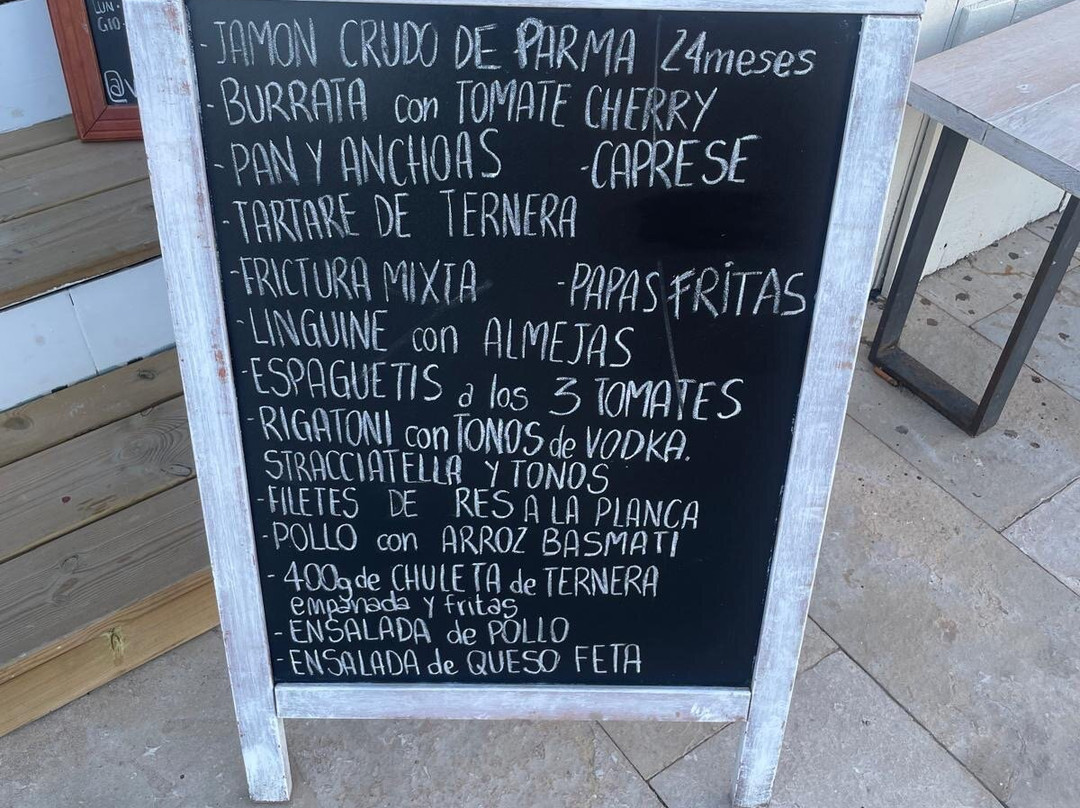 LUN-
GIO
@V
-JAMON CRUDO DE PARMA 24meses
-BURRATA con TOMATE CHERRY
-PAN Y ANCHOAS -CAPRESE
-TARTARE DE TERNERA
-FRICTURA MIXTA -PAPAS FRITAS
-LINGUINE con ALMEJAS
-ESPAGUETIS a los 3 TOMATES
-RIGATONI con TONOS de VODKA.
STRACCIATELLA Y TONOS
-FILETES DE RES A LA PLANCA
-POLLO con ARROZ BASMATI
-400g de CHULETA de TERNERA
empanada y fritas
-ENSALADA de POLLO
-ENSALADA de QUESO FETA